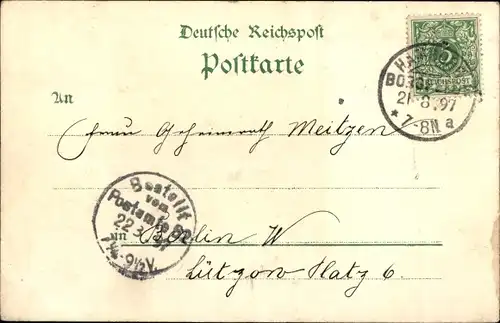 Deutsche Reichspost
Postkarte
An
Frau Geheimrath Meitzen
in Berlin W
Lützow Platz 6.
REICHSPOST
5
21 8.97
* 7-8N a
Bestellt
vom
Postamte
22 8
9½V.